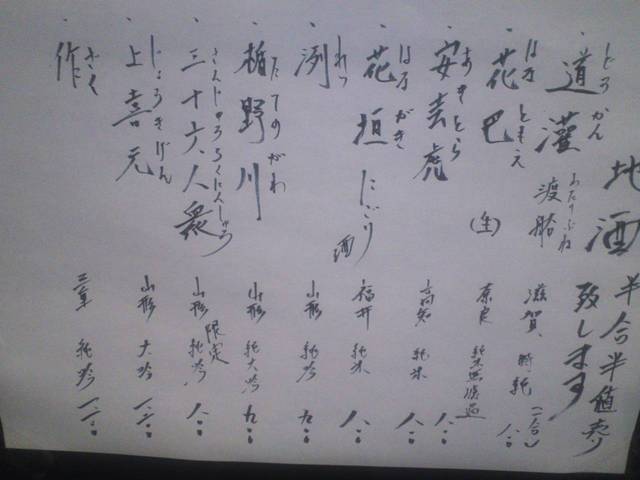 地酒 半合半値売り
致します
どうかん
・道灌 渡舟 滋賀 特純 (一合) 八〇〇
わたりぶね
はなともえ
・花巴 (生) 奈良 純米無濾過 八〇〇
あきとら
・安芸虎 高知 純米 八〇〇
はながき
・花垣 にごり酒 福井 純米 八〇〇
れつ
・洌 山形 純吟 九〇〇
たてのがわ
・楯野川 山形 純大吟 九〇〇
さんじゅうろくにんしゅう
・三十六人衆 山形 限定 純吟 八〇〇
じょうきげん
・上喜元 山形 大吟
ざく
・作 三重 純吟